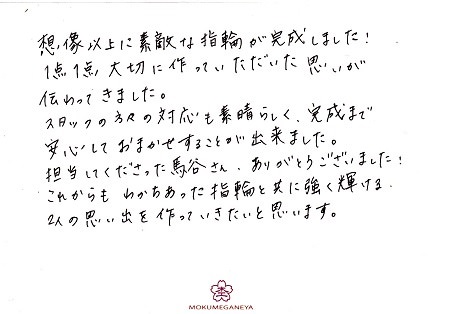 想像以上に素敵な指輪が完成しました!
1点1点、大切に作っていただいた思いが
伝わってきました。
スタッフの方々の対応も素晴らしく、完成まで
安心しておまかせすることが出来ました。
担当してくださった馬谷さん、ありがとうございました!
これからも わかちあった指輪と共に強く輝ける
2人の思い出を作っていきたいと思います。
MOKUMEGANEYA